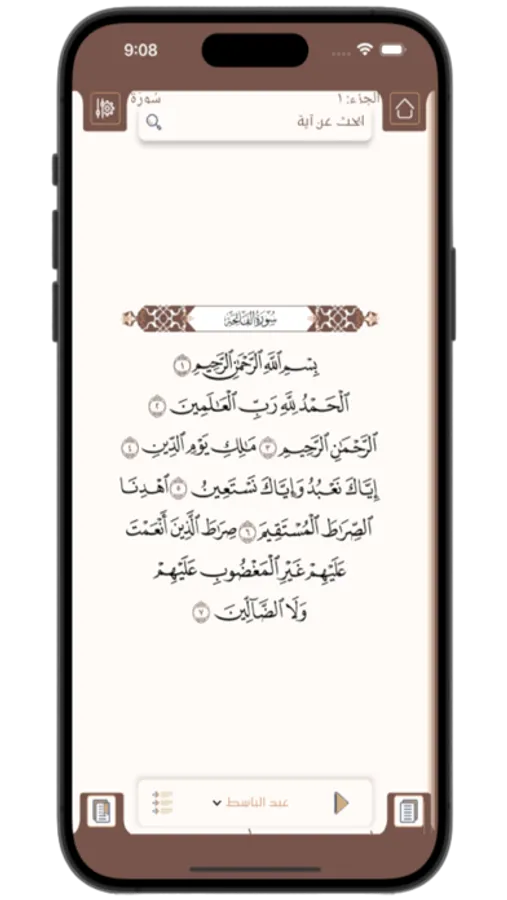 9:08
الجزء: ١
سُورَة
ابحث عن آية
سُورَةُ الفَاتِحَةِ
بِسْمِ ٱللَّهِ ٱلرَّحْمَٰنِ ٱلرَّحِيمِ ١
ٱلْحَمْدُ لِلَّهِ رَبِّ ٱلْعَٰلَمِينَ ٢
ٱلرَّحْمَٰنِ ٱلرَّحِيمِ ٣ مَٰلِكِ يَوْمِ ٱلدِّينِ ٤
إِيَّاكَ نَعْبُدُ وَإِيَّاكَ نَسْتَعِينُ ٥ ٱهْدِنَا
ٱلصِّرَٰطَ ٱلْمُسْتَقِيمَ ٦ صِرَٰطَ ٱلَّذِينَ أَنْعَمْتَ
عَلَيْهِمْ غَيْرِ ٱلْمَغْضُوبِ عَلَيْهِمْ
وَلَا ٱلضَّآلِّينَ ٧
عبد الباسط
١